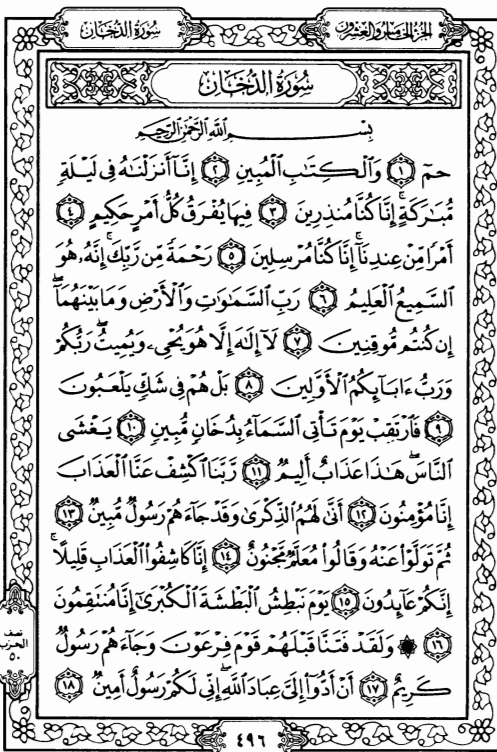 الجزء الخامس والعشرون
سُورَةُ الدُّخَانِ
سُورَةُ الدُّخَانِ
بِسْمِ اللَّهِ الرَّحْمَٰنِ الرَّحِيمِ
حمٓ ١ وَالْكِتَٰبِ الْمُبِينِ ٢ إِنَّآ أَنزَلْنَٰهُ فِى لَيْلَةٍ
مُّبَٰرَكَةٍ ۚ إِنَّا كُنَّا مُنذِرِينَ ٣ فِيهَا يُفْرَقُ كُلُّ أَمْرٍ حَكِيمٍ ٤
أَمْرًا مِّنْ عِندِنَآ ۚ إِنَّا كُنَّا مُرْسِلِينَ ٥ رَحْمَةً مِّن رَّبِّكَ ۚ إِنَّهُۥ هُوَ
السَّمِيعُ الْعَلِيمُ ٦ رَبِّ السَّمَٰوَٰتِ وَالْأَرْضِ وَمَا بَيْنَهُمَآ ۖ
إِن كُنتُم مُّوقِنِينَ ٧ لَآ إِلَٰهَ إِلَّا هُوَ يُحْىِۦ وَيُمِيتُ ۖ رَبُّكُمْ
وَرَبُّ ءَابَآئِكُمُ الْأَوَّلِينَ ٨ بَلْ هُمْ فِى شَكٍّ يَلْعَبُونَ
٩ فَارْتَقِبْ يَوْمَ تَأْتِى السَّمَآءُ بِدُخَانٍ مُّبِينٍ ١٠ يَغْشَى
النَّاسَ ۖ هَٰذَا عَذَابٌ أَلِيمٌ ١١ رَّبَّنَا اكْشِفْ عَنَّا الْعَذَابَ
إِنَّا مُؤْمِنُونَ ١٢ أَنَّىٰ لَهُمُ الذِّكْرَىٰ وَقَدْ جَآءَهُمْ رَسُولٌ مُّبِينٌ ١٣
ثُمَّ تَوَلَّوْا۟ عَنْهُ وَقَالُوا۟ مُعَلَّمٌ مَّجْنُونٌ ١٤ إِنَّا كَاشِفُوا۟ الْعَذَابِ قَلِيلًا ۚ
إِنَّكُمْ عَآئِدُونَ ١٥ يَوْمَ نَبْطِشُ الْبَطْشَةَ الْكُبْرَىٰٓ إِنَّا مُنتَقِمُونَ
١٦ ۞ وَلَقَدْ فَتَنَّا قَبْلَهُمْ قَوْمَ فِرْعَوْنَ وَجَآءَهُمْ رَسُولٌ
كَرِيمٌ ١٧ أَنْ أَدُّوٓا۟ إِلَىَّ عِبَادَ اللَّهِ ۖ إِنِّى لَكُمْ رَسُولٌ أَمِينٌ ١٨
نصف
الحزب
٥٠
٤٩٦